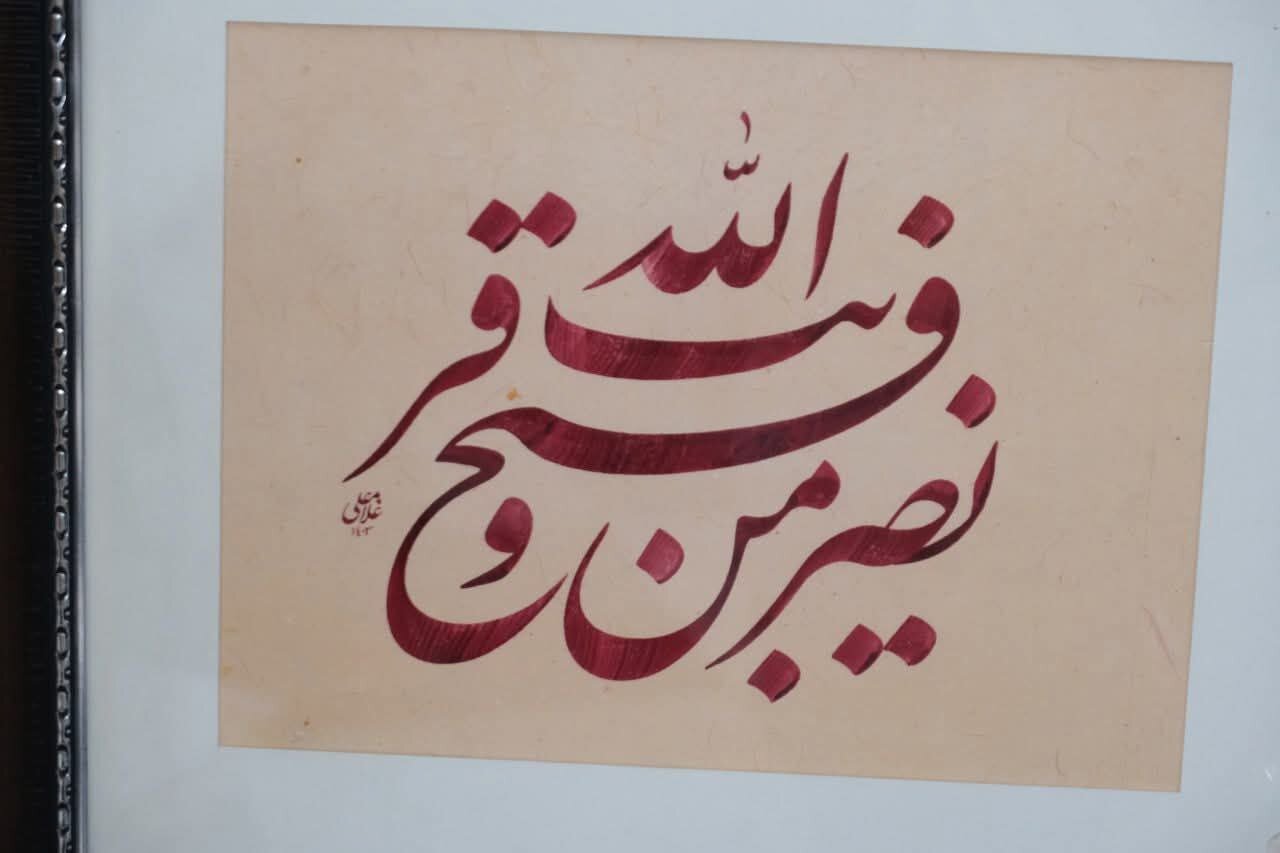 نصر من الله و فتح قریب
غلامعلی
۱۴۰۳